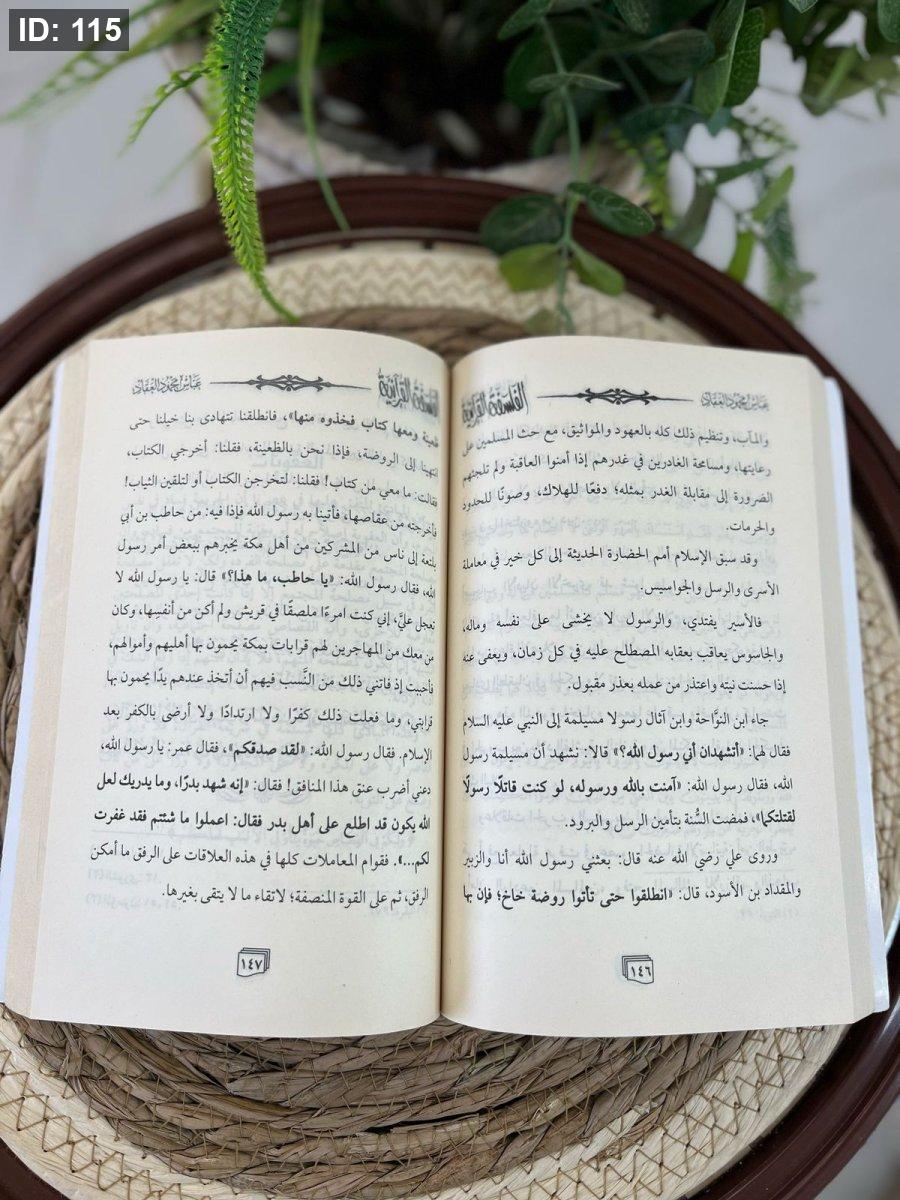 ID: 115
عباس محمود العقاد
الفلسفة القرآنية
والمآب، وتنظيم ذلك كله بالعهود والمواثيق، مع حث المسلمين على
رعايتها، ومسامحة الغادرين في غدرهم إذا أمنوا العاقبة ولم تلجئهم
الضرورة إلى مقابلة الغدر بمثله؛ دفعًا للهلاك، وصونًا للحدود
والحرمات.
وقد سبق الإسلام أمم الحضارة الحديثة إلى كل خير في معاملة
الأسرى والرسل والجواسيس.
فالأسير يفتدي، والرسول لا يخشى على نفسه وماله،
والجاسوس يعاقب بعقابه المصطلح عليه في كل زمان، ويعفى عنه
إذا حسنت نيته واعتذر من عمله بعذر مقبول.
جاء ابن النوَّاحة وابن آثال رسولا مسيلمة إلى النبي عليه السلام
فقال لهما: «أتشهدان أني رسول الله؟» قالا: نشهد أن مسيلمة رسول
الله، فقال رسول الله: «آمنت بالله ورسوله، لو كنت قاتلًا رسولًا
لقتلتكما»، فمضت السُّنة بتأمين الرسل والبرود.
وروى علي رضي الله عنه قال: بعثني رسول الله أنا والزبير
والمقداد بن الأسود، قال: «انطلقوا حتى تأتوا روضة خاخ؛ فإن بها
١٤٦
الفلسفة القرآنية
عباس محمود العقاد
ظعينة ومعها كتاب فخذوه منها»، فانطلقنا تتهادى بنا خيلنا حتى
انتهينا إلى الروضة، فإذا نحن بالظعينة، فقلنا: أخرجي الكتاب،
فقالت: ما معي من كتاب! فقلنا: لتخرجن الكتاب أو لتلقين الثياب!
فأخرجته من عقاصها، فأتينا به رسول الله فإذا فيه: من حاطب بن أبي
بلتعة إلى ناس من المشركين من أهل مكة يخبرهم ببعض أمر رسول
الله، فقال رسول الله: «يا حاطب، ما هذا؟» قال: يا رسول الله لا
تعجل عليَّ، إني كنت امرءًا ملصقًا في قريش ولم أكن من أنفسِها، وكان
من معك من المهاجرين لهم قرابات بمكة يحمون بها أهليهم وأموالهم،
فأحببت إذ فاتني ذلك من النَّسب فيهم أن أتخذ عندهم يدًا يحمون بها
قرابتي، وما فعلت ذلك كفرًا ولا ارتدادًا ولا أرضى بالكفر بعد
الإسلام. فقال رسول الله: «لقد صدقكم»، فقال عمر: يا رسول الله،
دعني أضرب عنق هذا المنافق! فقال: «إنه شهد بدرًا، وما يدريك لعل
الله يكون قد اطلع على أهل بدر فقال: اعملوا ما شئتم فقد غفرت
لكم...». فقوام المعاملات كلها في هذه العلاقات على الرفق ما أمكن
الرفق، ثم على القوة المنصفة؛ لاتقاء ما لا يتقى بغيرها.
١٤٧